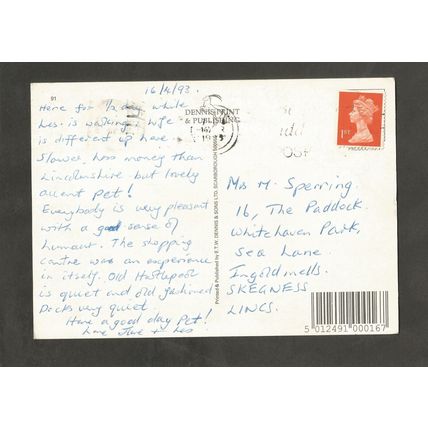 16/4/93.
Here for 1/2 day while
Les is walking. Life
is different up here
Slower, less money than
Lincolnshire but lovely
accent pet!
Everybody is very pleasant
with a good sense of
humour. The shopping
centre was an experience
in itself. Old Hartlepool
is quiet and old fashioned
Docks very quiet.
Have a good day Pet!
Love Jane + Les
91
DENNIS PRINT
& PUBLISHING
Printed & Published by E.T.W. DENNIS & SONS LTD. SCARBOROUGH
1st
Mrs M. Sperring.
16, The Paddock.
Whitehaven Park,
Sea Lane.
Ingoldmells.
SKEGNESS
LINCS.
5 012491 000167